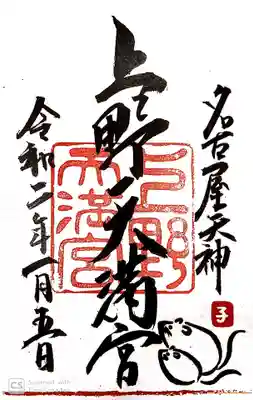 名古屋天神
上野天満宮
上野
天満宮
子
令和二年一月五日
CS Scanned with
CamScanner